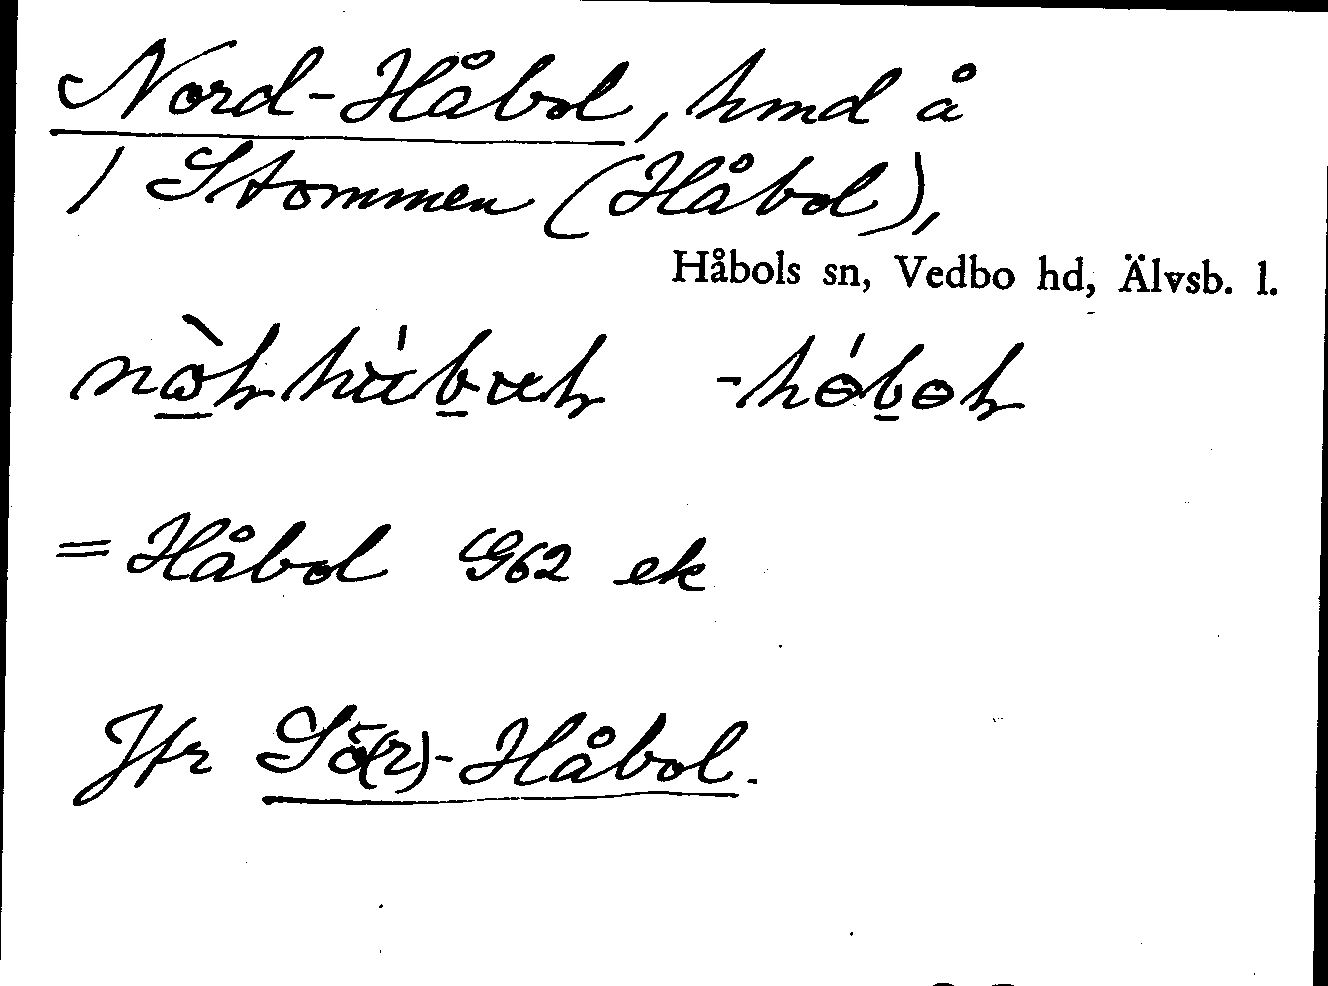 Nord-Håbol, hmd å
1 Stommen (Håbol),
Håbols sn, Vedbo hd, Älvsb. l.
= Håbol G62 ek
Jfr Sö(r)-Håbol.